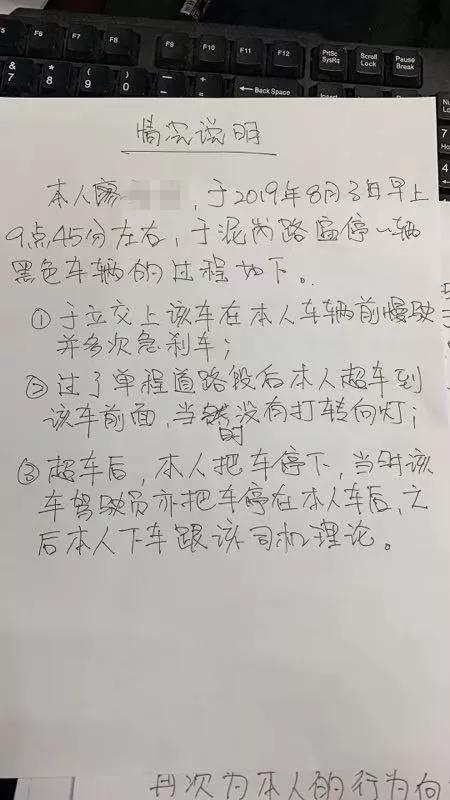 F5
F6
F7
F8
F9
F10
F11
F12
PrtSc
SysRq
Scroll
Lock
Pause
Break
&
7
*
8
(
9
)
0
—
-
+
=
Back Space
Num
Lock
7
Ho
4
情况说明
本人廖 ,于2019年8月3日早上
9点45分左右,于泥岗路 停一辆
黑色车辆的过程如下。
①于立交上该车在本人车辆前慢驶
并多次急刹车;
②过了单程道路段后本人超车到
该车前面,当时没有打转向灯;
③超车后,本人把车停下,当时该
车驾驶员亦把车停在本人车后,之
后本人下车跟该司机理论。
再次为本人的行为向